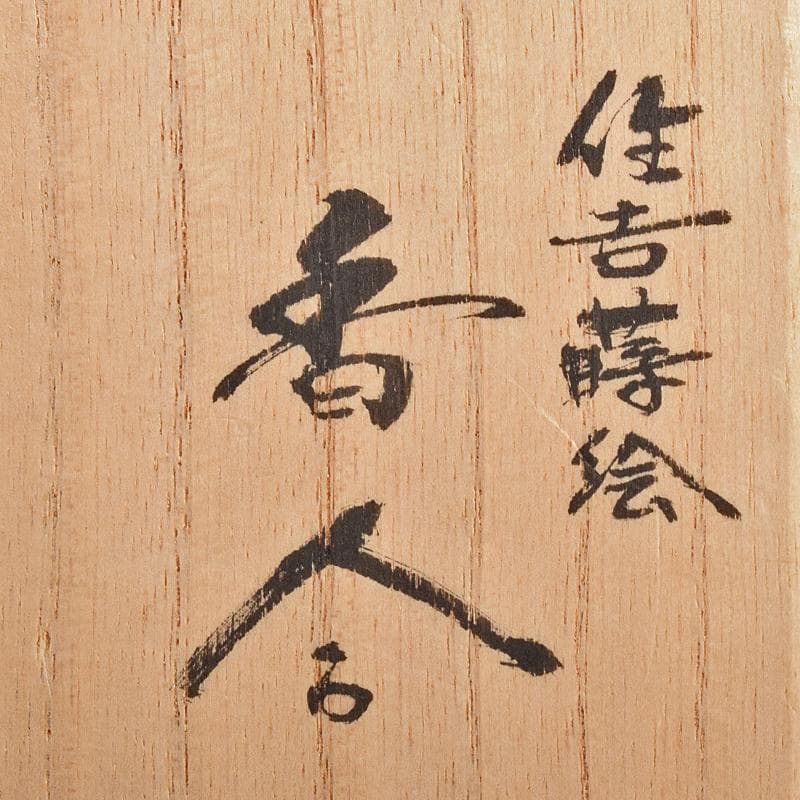 住吉蒔絵
香合